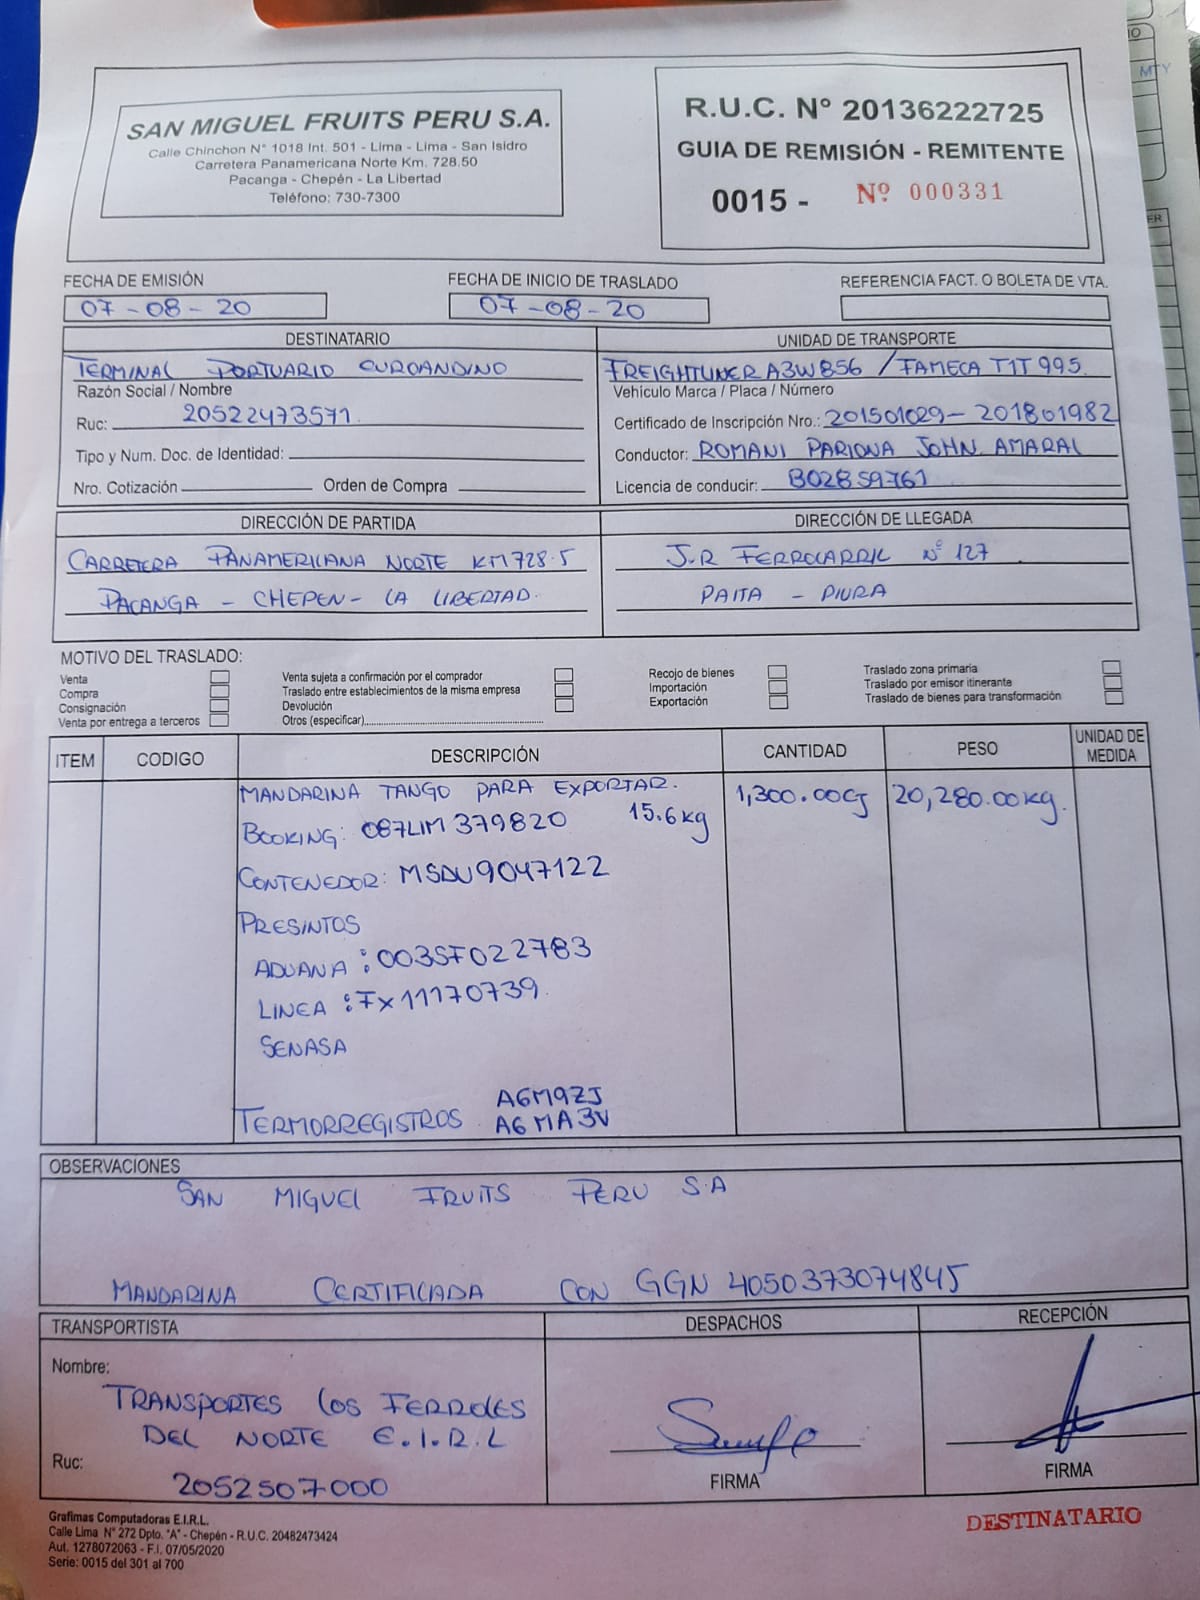 SAN MIGUEL FRUITS PERU S.A.
Calle Chinchon N° 1018 Int. 501 - Lima - Lima - San Isidro
Carretera Panamericana Norte Km. 728.50
Pacanga - Chepén - La Libertad
Teléfono: 730-7300
R.U.C. N° 20136222725
GUIA DE REMISIÓN - REMITENTE
0015 - Nº 000331
FECHA DE EMISIÓN
07-08-20
FECHA DE INICIO DE TRASLADO
07-08-20
REFERENCIA FACT. O BOLETA DE VTA.
DESTINATARIO
TERMINAL PORTUARIO EUROANDINO
Razón Social / Nombre
Ruc: 20522473571.
Tipo y Num. Doc. de Identidad:
Nro. Cotización Orden de Compra
UNIDAD DE TRANSPORTE
FREIGHTLINER A3W856 / FAMECA T1T 995.
Vehículo Marca / Placa / Número
Certificado de Inscripción Nro.: 201501029 - 201801982
Conductor: ROMANI PARIONA JOHN AMARAL
Licencia de conducir: B02859761
DIRECCIÓN DE PARTIDA
CARRETERA PANAMERICANA NORTE KM 728.5
PACANGA - CHEPEN - LA LIBERTAD.
DIRECCIÓN DE LLEGADA
J.R FERROCARRIL N° 127
PAITA - PIURA
MOTIVO DEL TRASLADO:
Venta
Compra
Consignación
Venta por entrega a terceros
Venta sujeta a confirmación por el comprador
Traslado entre establecimientos de la misma empresa
Devolución
Otros (especificar)
Recojo de bienes
Importación
Exportación
Traslado zona primaria
Traslado por emisor itinerante
Traslado de bienes para transformación
ITEM CODIGO DESCRIPCIÓN CANTIDAD PESO UNIDAD DE MEDIDA
MANDARINA TANGO PARA EXPORTAR. 1,300.00CJ 20,280.00kg.
BOOKING: 087LIM379820 15.6kg
CONTENEDOR: MSDU9047122
PRESINTOS
ADUANA : 003SF022783
LINEA : FX11170739.
SENASA
A6M9ZJ
TERMORREGISTROS A6MA3V
OBSERVACIONES
SAN MIGUEL FRUITS PERU S.A
MANDARINA CERTIFICADA CON GGN 4050373074845
TRANSPORTISTA
Nombre:
TRANSPORTES LOS FERROLES
DEL NORTE E.I.R.L
Ruc:
2052507000
DESPACHOS
FIRMA
RECEPCIÓN
FIRMA
Grafimas Computadoras E.I.R.L.
Calle Lima N° 272 Dpto. "A" - Chepén - R.U.C. 20482473424
Aut. 1278072063 - F.I. 07/05/2020
Serie: 0015 del 301 al 700
DESTINATARIO